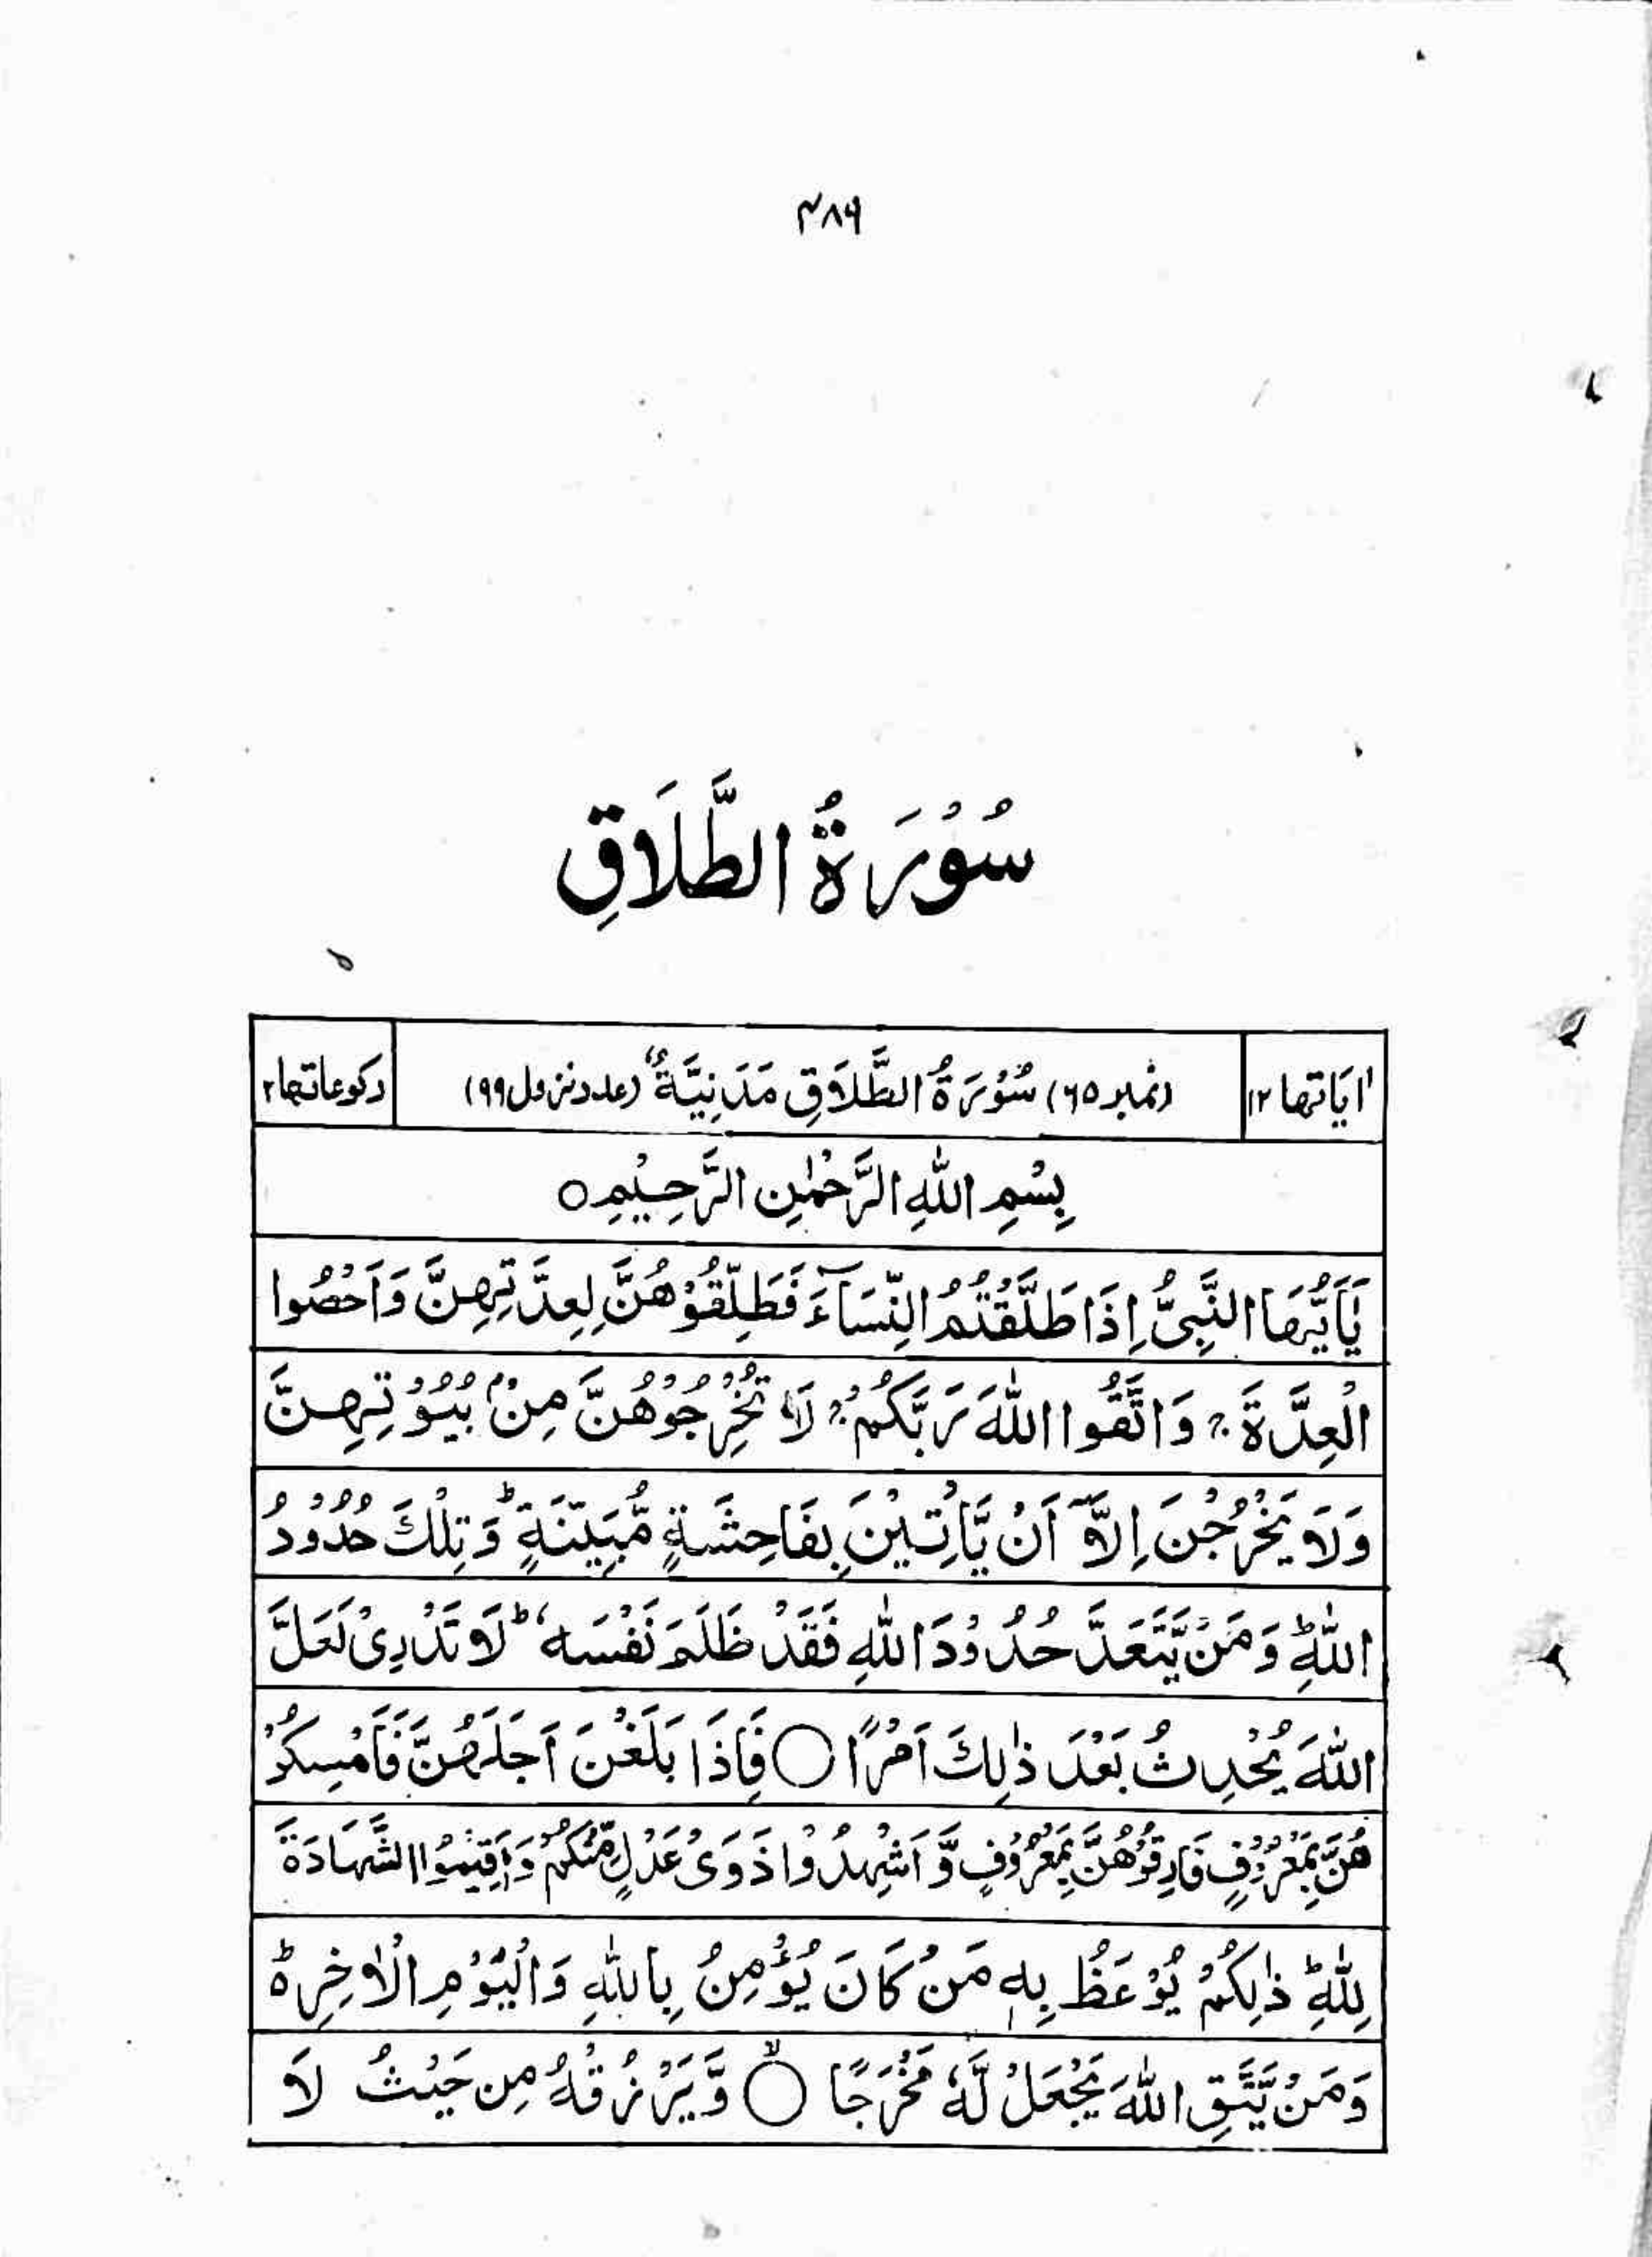 ۴۸۹
سُوْرَةُ الطَّلَاقِ
اٰیَاتُھَا ۱۲ (نمبر ۶۵) سُوْرَةُ الطَّلَاقِ مَدَنِيَّةٌ (عدد نزول ۹۹) رکوعاتھا ۲
بِسْمِ اللّٰهِ الرَّحْمٰنِ الرَّحِيْمِ ○
يٰٓاَيُّهَا النَّبِىُّ اِذَا طَلَّقْتُمُ النِّسَآءَ فَطَلِّقُوْهُنَّ لِعِدَّتِهِنَّ وَاَحْصُوا
الْعِدَّةَ ۚ وَاتَّقُوا اللّٰهَ رَبَّكُمْ ۚ لَا تُخْرِجُوْهُنَّ مِنْۢ بُيُوْتِهِنَّ
وَلَا يَخْرُجْنَ اِلَّآ اَنْ يَّاْتِيْنَ بِفَاحِشَةٍ مُّبَيِّنَةٍ ؕ وَتِلْكَ حُدُوْدُ
اللّٰهِ ؕ وَمَنْ يَّتَعَدَّ حُدُوْدَ اللّٰهِ فَقَدْ ظَلَمَ نَفْسَهٗ ؕ لَا تَدْرِىْ لَعَلَّ
اللّٰهَ يُحْدِثُ بَعْدَ ذٰلِكَ اَمْرًا ○ فَاِذَا بَلَغْنَ اَجَلَهُنَّ فَاَمْسِكُوْ
هُنَّ بِمَعْرُوْفٍ فَارِقُوْهُنَّ بِمَعْرُوْفٍ وَّاَشْهِدُوْا ذَوَىْ عَدْلٍ مِّنْكُمْ وَاَقِيْمُوا الشَّهَادَةَ
لِلّٰهِ ؕ ذٰلِكُمْ يُوْعَظُ بِهٖ مَنْ كَانَ يُؤْمِنُ بِاللّٰهِ وَالْيَوْمِ الْاٰخِرِ ؕ۬
وَمَنْ يَّتَّقِ اللّٰهَ يَجْعَلْ لَّهٗ مَخْرَجًا ○ۙ وَّيَرْزُقْهُ مِنْ حَيْثُ لَا